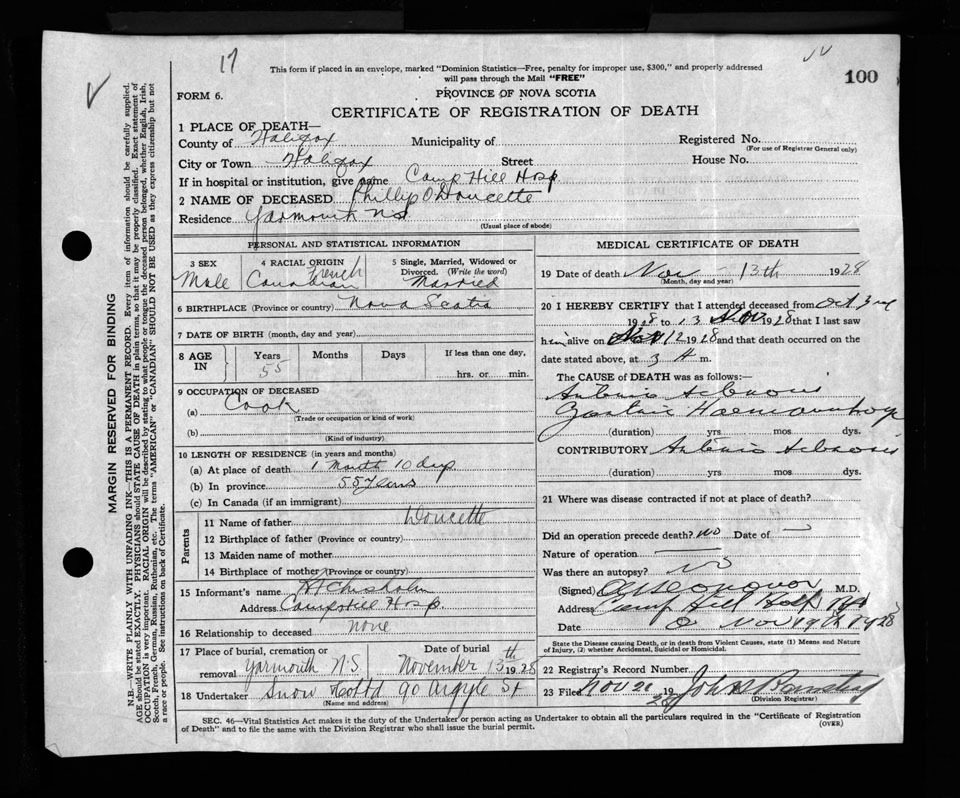 17
This form if placed in an envelope, marked "Dominion Statistics—Free, penalty for improper use, $300," and properly addressed
will pass through the Mail "FREE"
100
FORM 6.
PROVINCE OF NOVA SCOTIA
CERTIFICATE OF REGISTRATION OF DEATH
1 PLACE OF DEATH—
County of Halifax Municipality of Registered No.
(For use of Registrar General only)
City or Town Halifax Street House No.
If in hospital or institution, give name Camp Hill Hosp
2 NAME OF DECEASED Phillip O Doucette
Residence Yarmouth NS
(Usual place of abode)
PERSONAL AND STATISTICAL INFORMATION
3 SEX 4 RACIAL ORIGIN 5 Single, Married, Widowed or
Divorced. (Write the word)
Male French Canadian Married
6 BIRTHPLACE (Province or country) Nova Scotia
7 DATE OF BIRTH (month, day and year)
8 AGE IN Years Months Days If less than one day,
55 hrs. or min.
9 OCCUPATION OF DECEASED
(a) Cook
(Trade or occupation or kind of work)
(b)
(Kind of industry)
10 LENGTH OF RESIDENCE (in years and months)
(a) At place of death 1 month 10 days
(b) In province 55 years
(c) In Canada (if an immigrant)
Parents
11 Name of father Doucette
12 Birthplace of father (Province or country)
13 Maiden name of mother
14 Birthplace of mother (Province or country)
15 Informant's name A Chisholm
Address Camp Hill Hosp.
16 Relationship to deceased none
17 Place of burial, cremation or Date of burial
removal Yarmouth N.S. November 15th 1928
18 Undertaker Snow & Co Ltd 90 Argyle St
(Name and address)
MEDICAL CERTIFICATE OF DEATH
19 Date of death Nov - 13th 1928
(Month, day and year)
20 I HEREBY CERTIFY that I attended deceased from Oct 3rd
1928 to 13 Nov 1928 that I last saw
him alive on Nov 12 1928 and that death occurred on the
date stated above, at 3 A m.
The CAUSE of DEATH was as follows:—
Arterio Sclerosis
Gastric Haemorrhage
(duration) yrs mos dys.
CONTRIBUTORY Arterio Sclerosis
(duration) yrs mos dys.
21 Where was disease contracted if not at place of death?
Did an operation precede death? no Date of
Nature of operation
Was there an autopsy? no
(Signed) M.D.
Address Camp Hill Hosp
Date Nov 19th 1928
State the Disease causing Death, or in death from Violent Causes, state (1) Means and Nature
of Injury, (2) whether Accidental, Suicidal or Homicidal.
22 Registrar's Record Number
23 Filed Nov 20 1928 John
(Division Registrar)
SEC. 46—Vital Statistics Act makes it the duty of the Undertaker or person acting as Undertaker to obtain all the particulars required in the "Certificate of Registration
of Death" and to file the same with the Division Registrar who shall issue the burial permit.
(OVER)
MARGIN RESERVED FOR BINDING
N.B.—WRITE PLAINLY WITH UNFADING INK—THIS IS A PERMANENT RECORD. Every item of information should be carefully supplied.
AGE should be stated EXACTLY. PHYSICIANS should STATE CAUSE OF DEATH in plain terms, so that it may be properly classified. Exact statement of
OCCUPATION is very important. RACIAL ORIGIN will be described by stating to what people or tongue the deceased person belonged, whether English, Irish,
Scotch, French, German, Russian, Ruthenian, etc. The terms "AMERICAN" or "CANADIAN" SHOULD NOT BE USED as they express citizenship but not
a race or people. See instructions on back of Certificate.